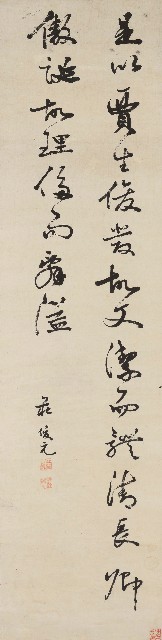 是以賈生俊發故文潔而體清長卿
傲誕故理侈而辭溢
莊俊元